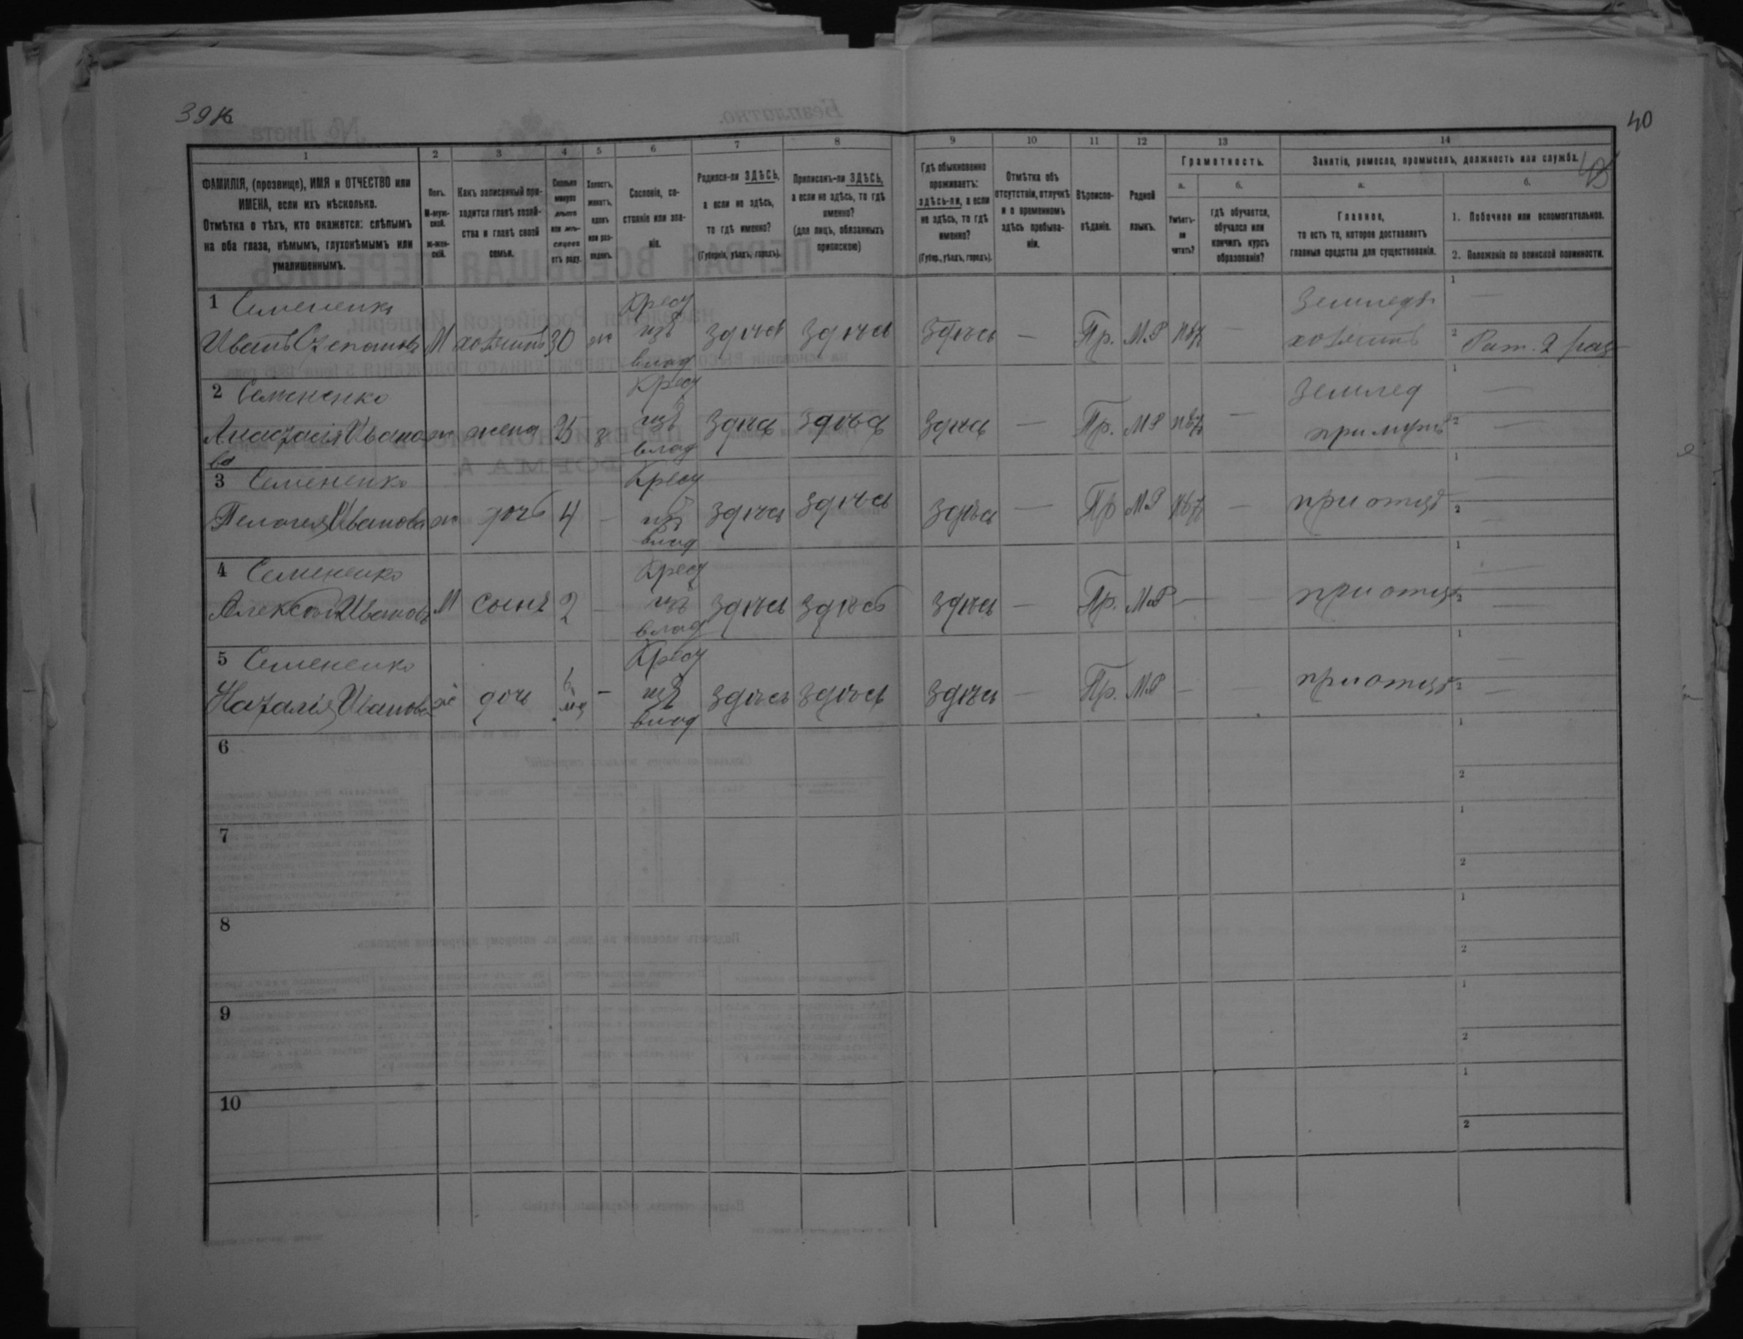 40
1 2 3 4 5 6 7 8 9 10 11 12 13 14
ФАМИЛІЯ, (прозвище), ИМЯ и ОТЧЕСТВО или
ИМЕНА, если ихъ нѣсколько.
Отмѣтка о тѣхъ, кто окажется: слѣпымъ
на оба глаза, нѣмымъ, глухонѣмымъ или
умалишеннымъ.
Полъ.
М-муж-
ской.
ж-жен-
скій.
Какъ записанный при-
ходится главѣ хозяй-
ства и главѣ своей
семьи.
Сколько
минуло
лѣтъ
или мѣ-
сяцевъ
отъ роду.
Холостъ,
женатъ,
вдовъ
или раз-
веденъ.
Сословіе, со-
стояніе или зва-
ніе.
Родился-ли ЗДѢСЬ,
а если не здѣсь,
то гдѣ именно?
(Губернія, уѣздъ, городъ).
Приписанъ-ли ЗДѢСЬ,
а если не здѣсь, то гдѣ
именно?
(для лицъ, обязанныхъ
припискою)
Гдѣ обыкновенно
проживаетъ:
здѣсь-ли, а если
не здѣсь, то гдѣ
именно?
(Губер., уѣздъ, городъ).
Отмѣтка объ
отсутствіи, отлучкѣ
и о временномъ
здѣсь пребыва-
ніи.
Вѣроиспо-
вѣданіе.
Родной
языкъ.
Грамотность.
а.
Умѣетъ-
ли
читать?
б.
гдѣ обучается,
обучался или
кончилъ курсъ
образованія?
Занятіе, ремесло, промыселъ, должность или служба.
а.
Главное,
то есть то, которое доставляетъ
главныя средства для существованія.
б.
1. Побочное или вспомогательное.
2. Положеніе по воинской повинности.
1 Семененко Крест Земледѣ 1 —
Иванъ Степановъ М хозяинъ 30 ж изъ здѣсь здѣсь здѣсь — Пр. М.Р нѣт — хозяинъ 2 Рат. 2 раз
влад
2 Семененко Крест Землед 1 —
Анастасія Ивано ж жена 25 з изъ здѣсь здѣсь здѣсь — Пр. МР нѣт — при мужѣ 2 —
ва влад
3 Семененко Крест 1 —
Пелагея Иванова ж дочь 4 — изъ здѣсь здѣсь здѣсь — Пр МР нѣт — при отцѣ 2 —
влад
4 Семененко Крест 1 —
Алексѣй Ивановъ М сынъ 2 — изъ здѣсь здѣсь здѣсь — Пр. МР — при отцѣ 2 —
влад
5 Семененко Крест 1 —
Наталія Иванова ж дочь 6 мц — изъ здѣсь здѣсь здѣсь — Пр. МР — при отцѣ 2 —
влад
6 1
2
7 1
2
8 1
2
9 1
2
10 1
2